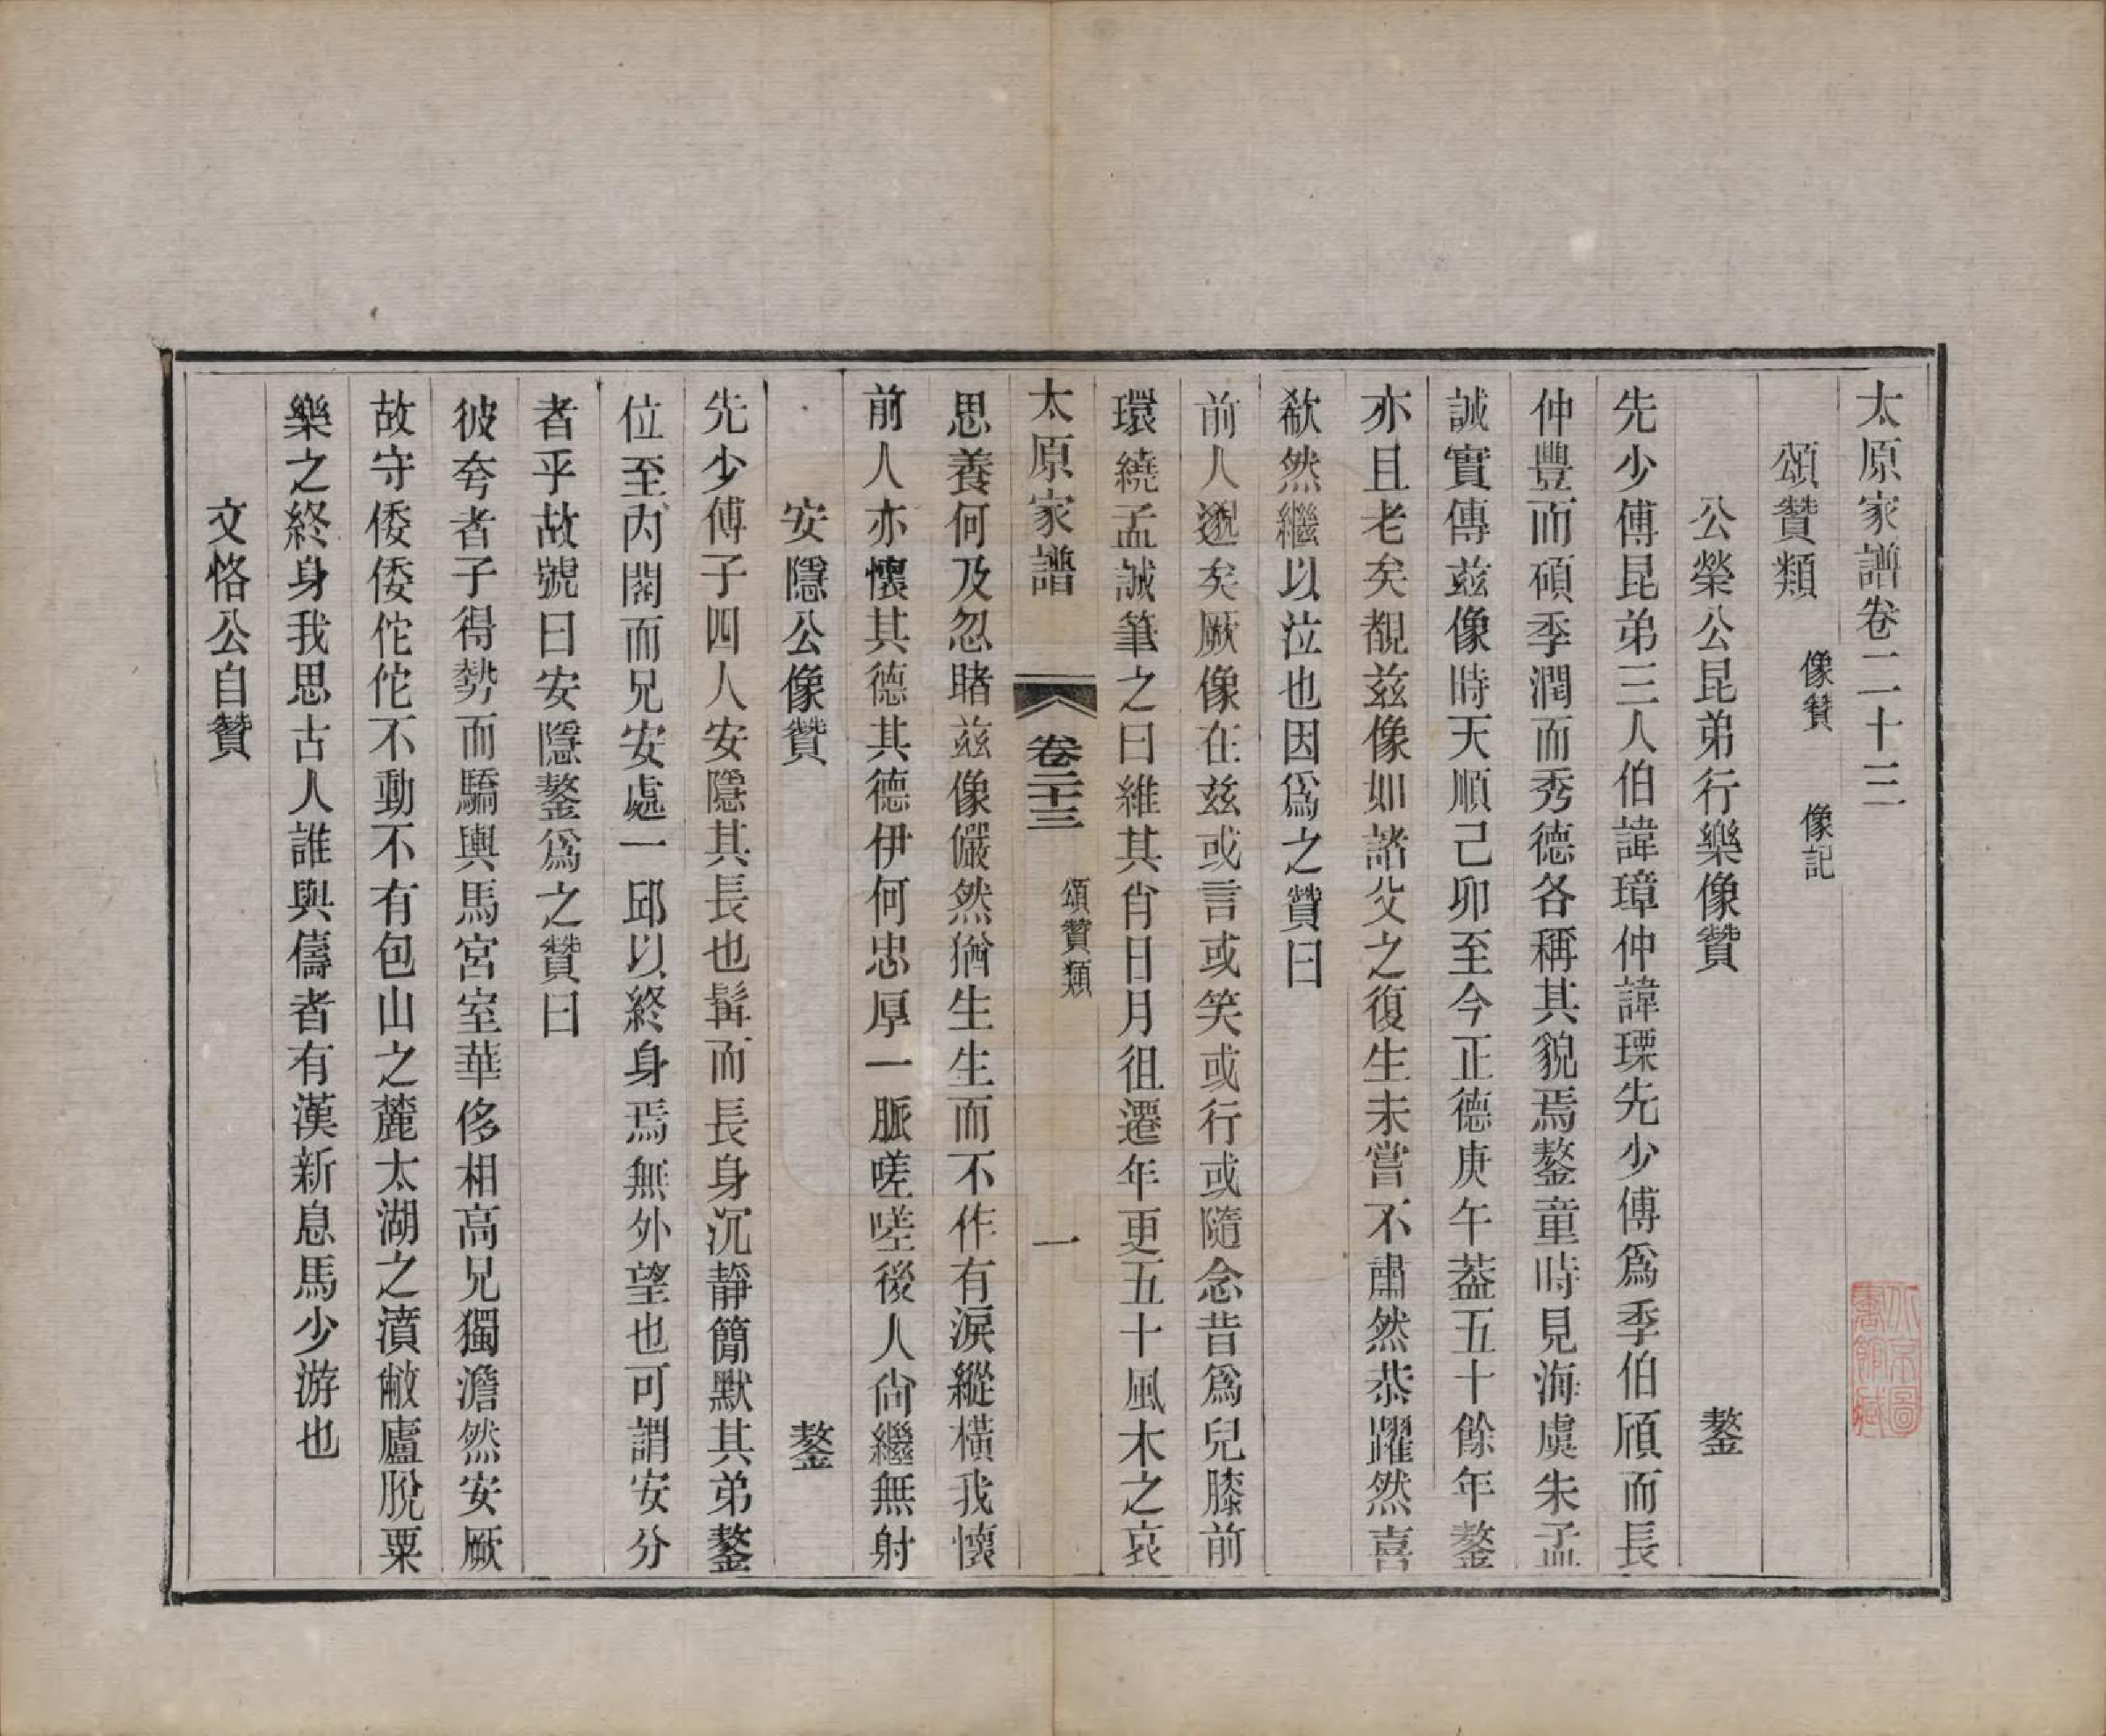 太原家譜卷二十三
頌贊類　像贊　像記
公榮公昆弟行樂像贊　鏊
先少傅昆弟三人伯諱璋仲諱瑮先少傅爲季伯頎而長
仲豐而碩季潤而秀德各稱其貌焉鏊童時見海虞朱孟
誠實傳茲像時天順己卯至今正德庚午葢五十餘年鏊
亦且老矣覩茲像如諸父之復生未嘗不肅然恭躍然喜
欷然繼以泣也因爲之贊曰
前人邈矣厥像在茲或言或笑或行或隨念昔爲兒膝前
環繞孟誠筆之曰維其肖日月徂遷年更五十風木之哀
太原家譜　卷二十三　頌贊類　一
思養何及忽睹茲像儼然猶生生而不作有淚縱橫我懷
前人亦懷其德其德伊何忠厚一脈嗟嗟後人尙繼無射
安隱公像贊　鏊
先少傅子四人安隱其長也髯而長身沉靜簡默其弟鏊
位至內閣而兄安處一邱以終身焉無外望也可謂安分
者乎故號曰安隱鏊爲之贊曰
彼夸者子得勢而驕輿馬宮室華侈相高兄獨澹然安厥
故守倭倭佗佗不動不有包山之麓太湖之濆敝廬脫粟
樂之終身我思古人誰與儔者有漢新息馬少游也
文恪公自贊